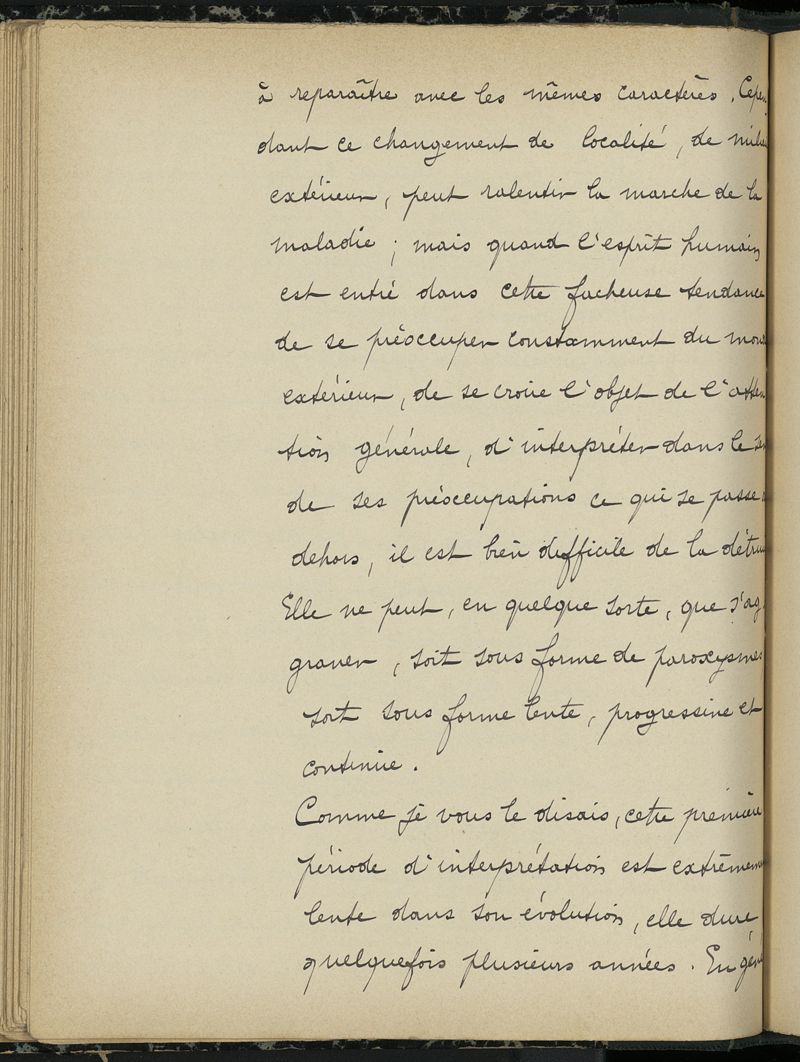 à reparaître avec les mêmes caractères. Cepen
dant ce changement de localité, de milieu
extérieur, peut ralentir la marche de la
maladie ; mais quand l'esprit humain
est entré dans cette facheuse tendance
de se préoccuper constamment du mon
extérieur, de se croire l'objet de l'atten
tion générale, d'interpréter dans le sen
de ses préoccupations ce qui se passe a
dehors, il est bien difficile de la détrui
Elle ne peut, en quelque sorte, que s'ag
graver, soit sous forme de paroxysmes
soit sous forme lente, progressive et
continue.
Comme je vous le disais, cette première
période d'interprétation est extrêmem
lente dans son évolution, elle dure
quelquefois plusieurs années. En géné